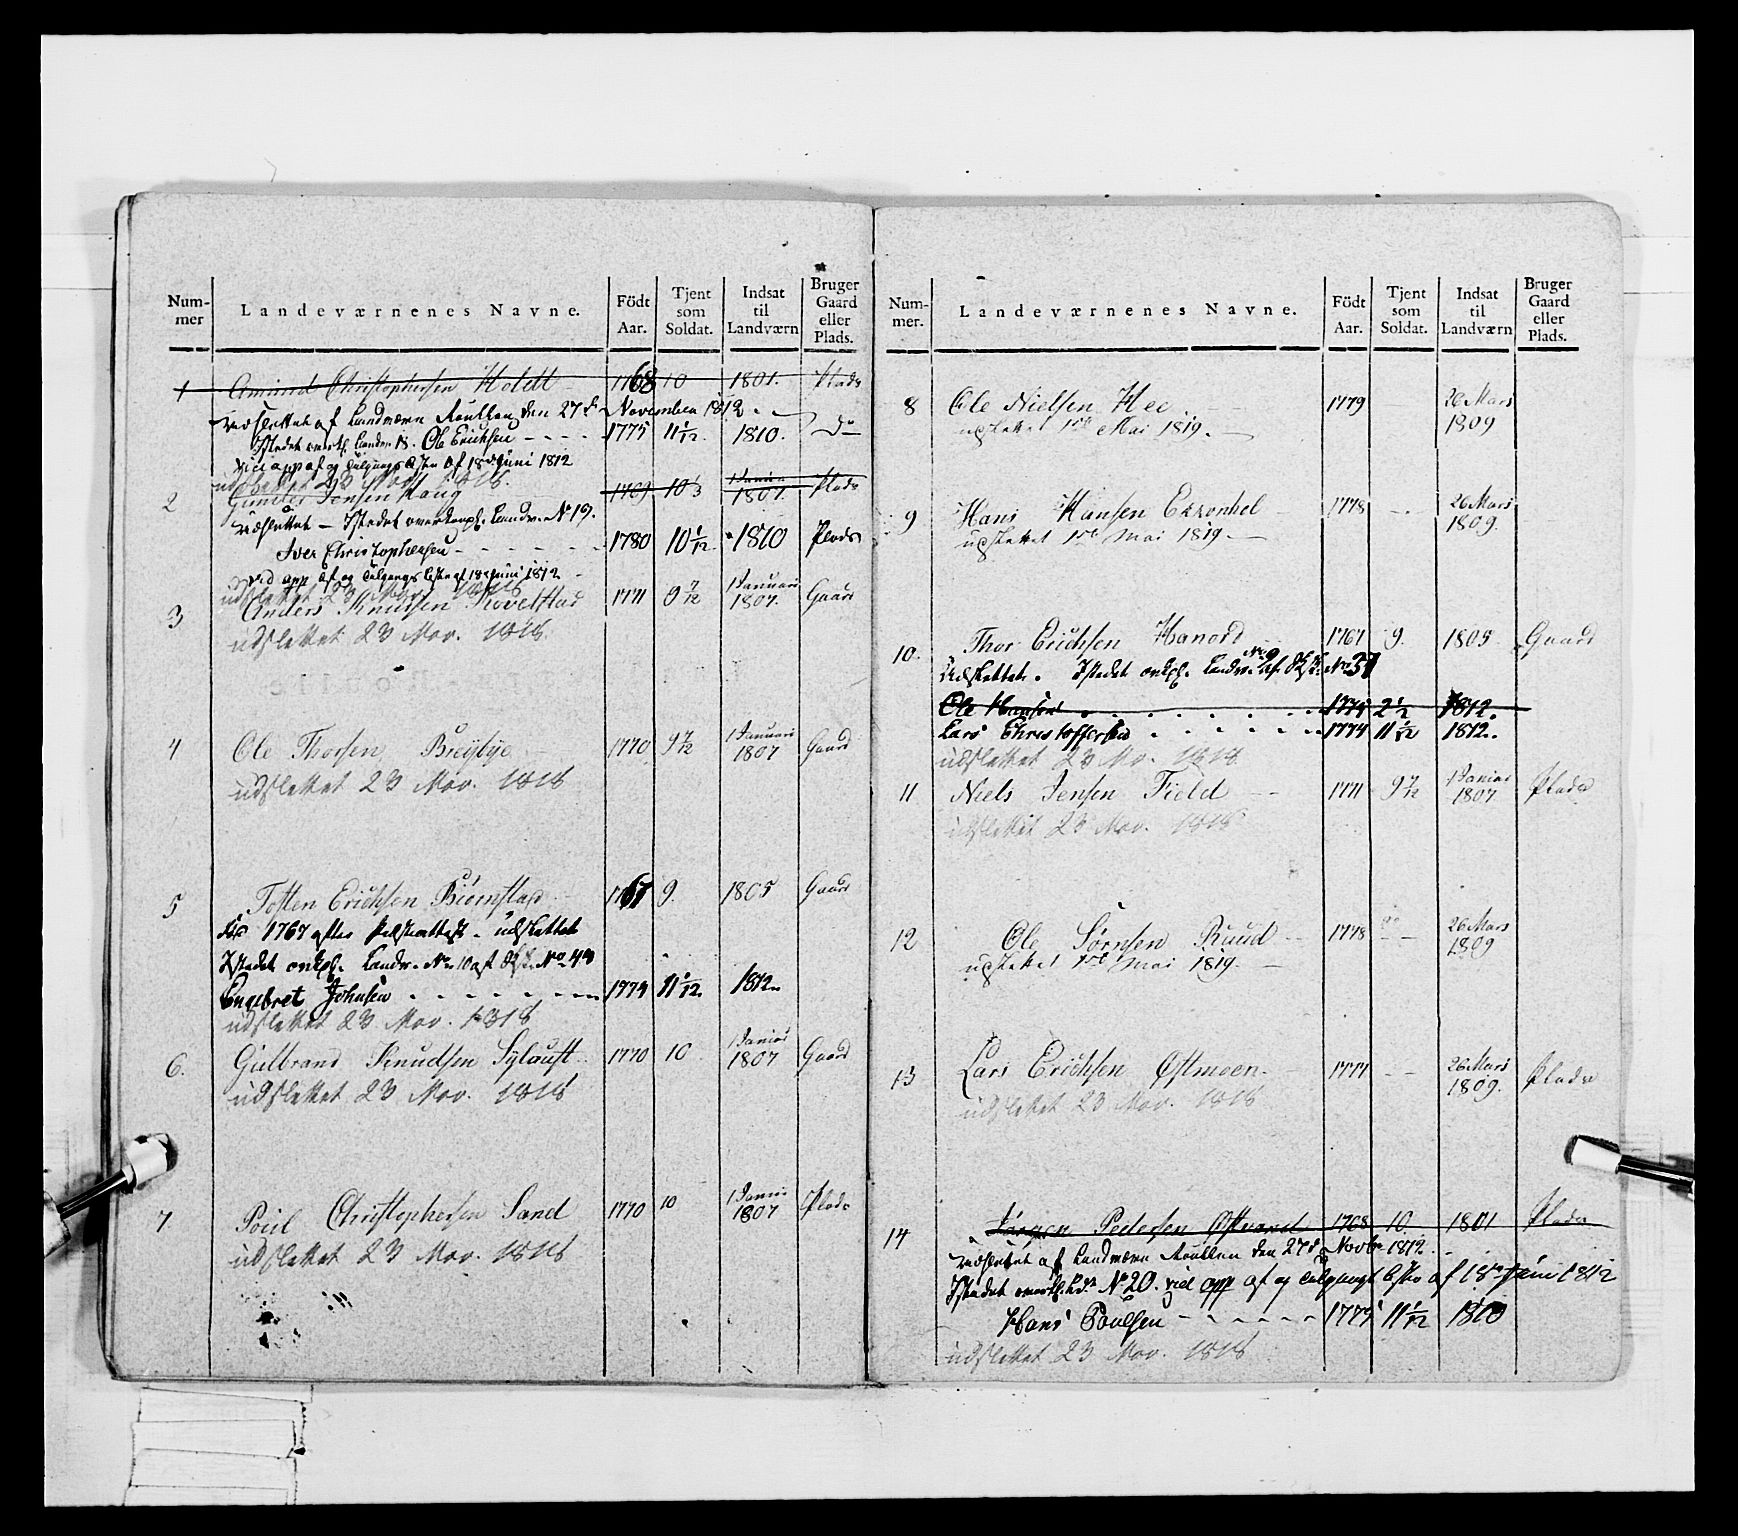 Num-
mer
Landeværnenes Navne.
Födt
Aar.
Tjent
som
Soldat.
Indsat
til
Landværn
Bruger
Gaard
eller
Plads.
1 Amund Christophersen Holdt 1768 10 1801. Plads
udslettet af Landværn Roullen den 27d November 1812
Istedet overk. Landv. 18. Ole Erichsen 1775 11 1/12. 1810. Do
vid app af og Tilgangs Listen af 18d Juni 1812
udslettet 23 Mov. 1818.
2 Gunder Jensen Haug 1769 10 1/3 1 Januar 1807. Plads
udslettet – Istedet overkompl. Landv. No 19.
Iver Christophersen 1780 10 1/12. 1810 Plads
vid app af og Tilgangs Liste af 18d Juni 1812
udslettet 23 Mov. 1818
3 Anders Knudsen 1771 9 7/12 1 Januari 1807. Gaard
udslettet 23 Mov. 1818
4 Ole Thorsen Breybye 1770 9 7/12 1 Januari 1807 Gaard
udslettet 23 Mov. 1818
5 Tosten Erichsen Biørnstad 1767 9. 1805 Gaard
1767 efter udslettet
Istedet ovkpl. Landv. No. 10 af No 44
Engebret Johnsen 1774 11 1/12. 1812.
udslettet 23 Mov. 1818
6. Gulbrand Knudsen 1770 10 1 Januar 1807 Gaard
udslettet 23 Mov. 1818
7. Poul Christophersen Sand 1770 10 1 Januar 1807 Plads
udslettet 23 Mov. 1818
Num-
mer.
Landeværnenes Navne.
Födt
Aar.
Tjent
som
Soldat.
Indsat
til
Landværn
Bruger
Gaard
eller
Plads.
8 Ole Nielsen Hee 1779 26 Mars 1809
udslettet 1st Mai 1819.
9 Hans Hansen 1778 26 Mars 1809.
udslettet 1st Mai 1819.
10. Thor Erichsen Hanord 1767 9. 1805 Gaard
Udslettet. Istedet ovkpl. Landv. No 9 af No 31
Ole Hansen 1775 2 1/2 1812.
Lars Christoffersen 1774 11 1/12 1812.
udslettet 23 Mo. 1818
11 Niels Jensen Field 1771 9 7/12 1 Januar 1807 Plads
udslettet 23 Mov. 1818
12 Ole Sørnsen Ruud 1778 26 Mars 1809
udslettet 1st Mai 1819.
13 Lars Erichsen Østmoen 1777 26 Mars 1809. Plads
udslettet 23 Mov. 1818
14 Jørgen Pedersen 1768 10 1801 Plads
udslettet af Landværn Roullen den 27d Novbr 1812.
Istedet overk. Ldv. No 20. vid app af og Tilgangs Liste af 18de Juni 1812
Hans Poulsen 1775 11 1/12 1810
udslettet 23 Mov. 1818